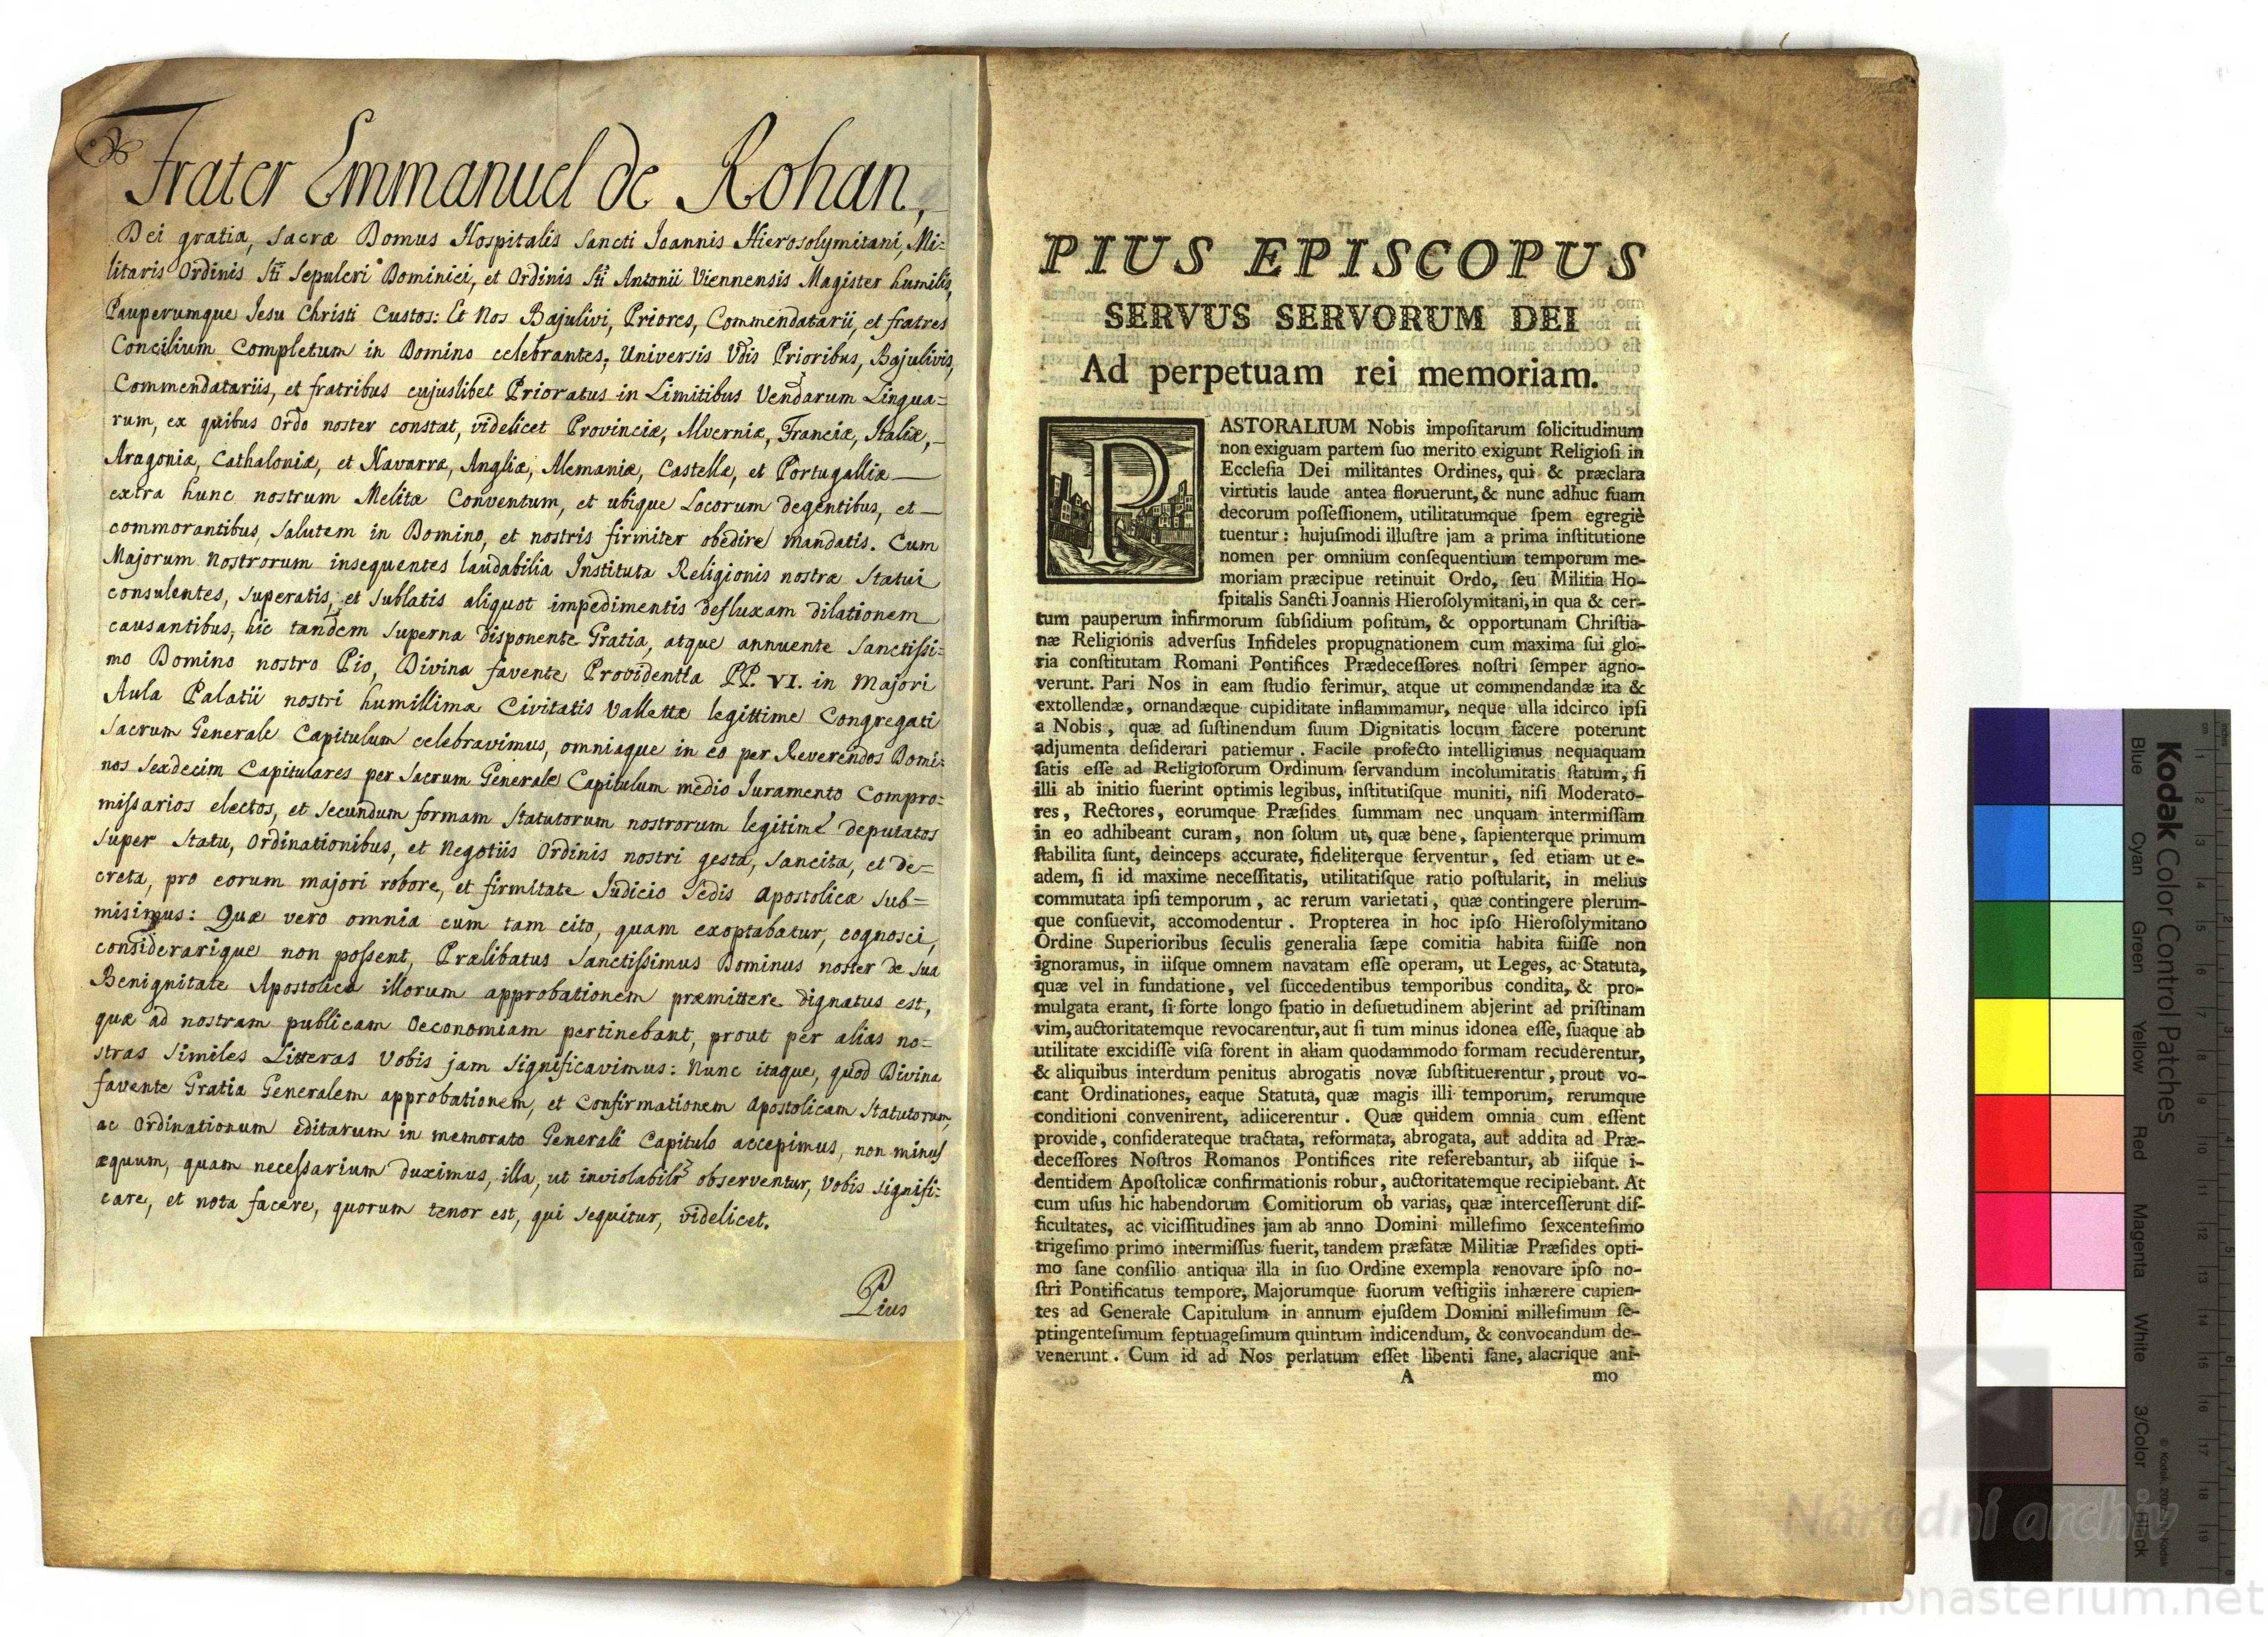 Frater Emmanuel de Rohan,
Dei gratia, Sacræ Domus Hospitalis Sancti Joannis Hierosolymitani, Mi=
litaris Ordinis Sti Sepulcri Dominici, et Ordinis Sti Antonii Viennensis Magister humilis,
Pauperumque Jesu Christi Custos: Et Nos Bajulivi, Priores, Commendatarii, et fratres
Concilium Completum in Domino celebrantes; Universis Vdis Prioribus, Bajulivis,
Commendatariis, et fratribus cujuslibet Prioratus in Limitibus Vendarum Lingua=
rum, ex quibus Ordo noster constat, videlicet Provinciæ, Alverniæ, Franciæ, Italiæ,
Aragoniæ, Cathaloniæ, et Navarræ, Angliæ, Alemaniæ, Castellæ, et Portugalliæ
extra hunc nostrum Melitæ Conventum, et ubique Locorum degentibus, et
commorantibus, Salutem in Domino, et nostris firmiter obedire mandatis. Cum
Majorum Nostrorum insequentes laudabilia Instituta Religionis nostræ Statui
consulentes, superatis, et sublatis aliquot impedimentis defluxam dilationem
causantibus, hic tandem superna disponente Gratia, atque annuente Sanctissi=
mo Domino nostro Pio, Divina favente Providentia PP. VI. in Majori
Aula Palatii nostri humillimæ Civitatis Vallettæ legittime Congregati
Sacrum Generale Capitulum celebravimus, omniaque in eo per Reverendos Domi=
nos Sexdecim Capitulares per Sacrum Generale Capitulum medio Juramento Compro=
missarios electos, et secundum formam Statutorum nostrorum legitimè deputatos
super Statu, Ordinationibus, et Negotiis Ordinis nostri gesta, sancita, et de=
creta, pro eorum majori robore, et firmitate Judicio Sedis Apostolicæ sub=
misimus: Quæ vero omnia cum tam cito, quam exoptabatur, cognosci,
considerarique non possent, Prælibatus Sanctissimus Dominus noster de sua
Benignitate Apostolica illorum approbationem præmittere dignatus est,
quæ ad nostram publicam Oeconomiam pertinebant, prout per alias no=
stras similes Litteras Vobis jam significavimus: Nunc itaque, quod Divina
favente Gratia Generalem approbationem, et Confirmationem Apostolicam Statutorum,
ac Ordinationum editarum in memorato Generali Capitulo accepimus, non minus
æquum, quam necessarium duximus, illa, ut inviolabilr observentur, Vobis signifi=
care, et nota facere, quorum tenor est, qui sequitur, videlicet.
Pius
PIUS EPISCOPUS
SERVUS SERVORUM DEI
Ad perpetuam rei memoriam.
PASTORALIUM Nobis impoſitarum ſolicitudinum
non exiguam partem ſuo merito exigunt Religioſi in
Eccleſia Dei militantes Ordines, qui & præclara
virtutis laude antea floruerunt, & nunc adhuc ſuam
decorum poſſeſſionem, utilitatumque ſpem egregiè
tuentur: hujuſmodi illuſtre jam a prima inſtitutione
nomen per omnium conſequentium temporum me-
moriam præcipue retinuit Ordo, ſeu Militia Ho-
ſpitalis Sancti Joannis Hieroſolymitani, in qua & cer-
tum pauperum infirmorum ſubſidium poſitum, & opportunam Chriſtia-
næ Religionis adverſus Infideles propugnationem cum maxima ſui glo-
ria conſtitutam Romani Pontifices Prædeceſſores noſtri ſemper agno-
verunt. Pari Nos in eam ſtudio ferimur, atque ut commendandæ ita &
extollendæ, ornandæque cupiditate inflammamur, neque ulla idcirco ipſi
a Nobis, quæ ad ſuſtinendum ſuum Dignitatis locum facere poterunt
adjumenta deſiderari patiemur. Facile profecto intelligimus nequaquam
ſatis eſſe ad Religioſorum Ordinum ſervandum incolumitatis ſtatum, ſi
illi ab initio fuerint optimis legibus, inſtitutiſque muniti, niſi Moderato-
res, Rectores, eorumque Præſides ſummam nec unquam intermiſſam
in eo adhibeant curam, non ſolum ut, quæ bene, ſapienterque primum
ſtabilita ſunt, deinceps accurate, fideliterque ſerventur, ſed etiam ut e-
adem, ſi id maxime neceſſitatis, utilitatiſque ratio poſtularit, in melius
commutata ipſi temporum, ac rerum varietati, quæ contingere plerum-
que conſuevit, accomodentur. Propterea in hoc ipſo Hieroſolymitano
Ordine Superioribus ſeculis generalia ſæpe comitia habita fuiſſe non
ignoramus, in iiſque omnem navatam eſſe operam, ut Leges, ac Statuta,
quæ vel in fundatione, vel ſuccedentibus temporibus condita, & pro-
mulgata erant, ſi forte longo ſpatio in deſuetudinem abierint ad priſtinam
vim, auctoritatemque revocarentur, aut ſi tum minus idonea eſſe, ſuaque ab
utilitate excidiſſe viſa forent in aliam quodammodo formam recuderentur,
& aliquibus interdum penitus abrogatis novæ ſubſtituerentur, prout vo-
cant Ordinationes, eaque Statuta, quæ magis illi temporum, rerumque
conditioni convenirent, adiicerentur. Quæ quidem omnia cum eſſent
provide, conſiderateque tractata, reformata, abrogata, aut addita ad Præ-
deceſſores Noſtros Romanos Pontifices rite referebantur, ab iiſque i-
dentidem Apoſtolicæ confirmationis robur, auctoritatemque recipiebant. At
cum uſus hic habendorum Comitiorum ob varias, quæ interceſſerunt dif-
ficultates, ac viciſſitudines jam ab anno Domini milleſimo ſexcenteſimo
trigeſimo primo intermiſſus fuerit, tandem præfatæ Militiæ Præſides opti-
mo ſane conſilio antiqua illa in ſuo Ordine exempla renovare ipſo no-
ſtri Pontificatus tempore, Majorumque ſuorum veſtigiis inhærere cupien-
tes ad Generale Capitulum in annum ejuſdem Domini milleſimum ſe-
ptingenteſimum ſeptuageſimum quintum indicendum, & convocandum de-
venerunt. Cum id ad Nos perlatum eſſet libenti ſane, alacrique ani-
A mo
Kodak Color Control Patches
Blue Cyan Green Yellow Red Magenta White 3/Color Black
© Kodak, 2007 Kodak
Národní archiv
monasterium.net